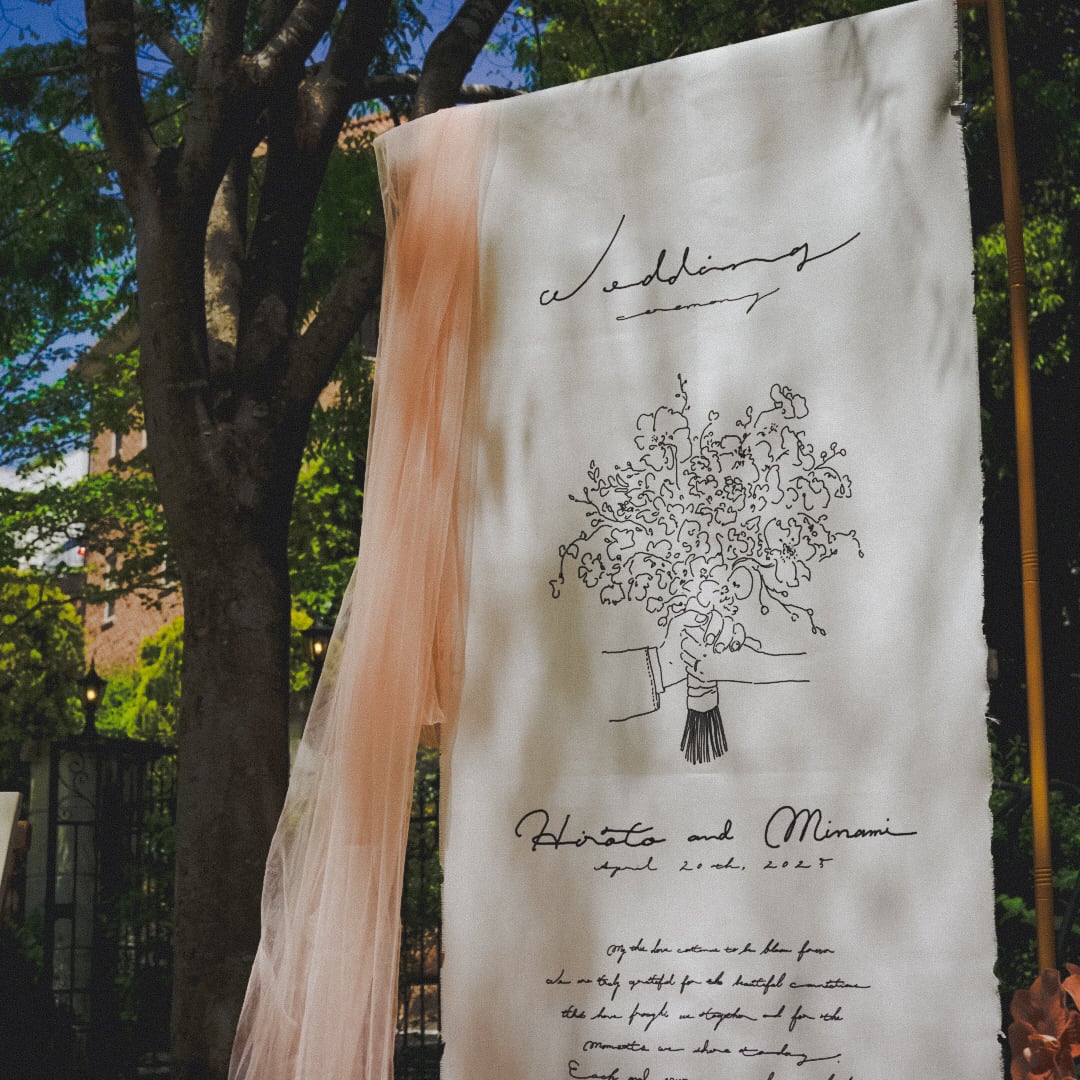 Wedding
ceremony
Hiroto and Minami
April 20th, 2025
My this love continue to be bloom forever
We are truly grateful for the beautiful connections
that have brought us together and for the
moments we share today.
Each and